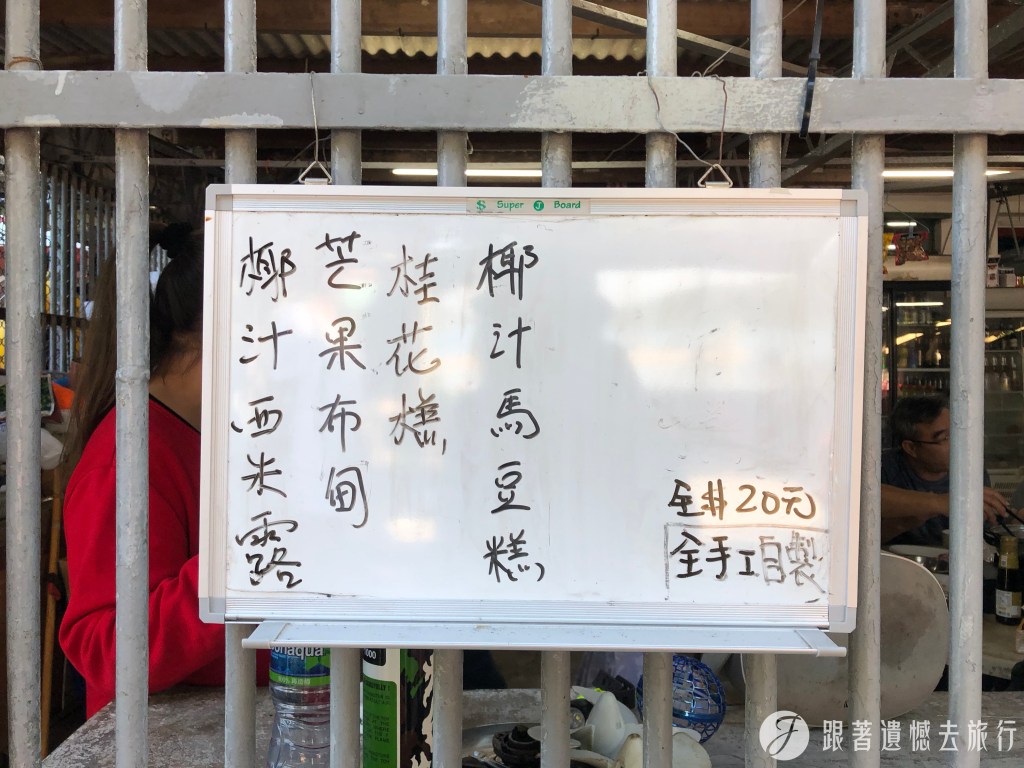 Super J Board
椰汁馬豆糕
桂花糕
芒果布甸
椰汁西米露
全井20元
全手工自製
onaqua
1000
跟著遺憾去旅行